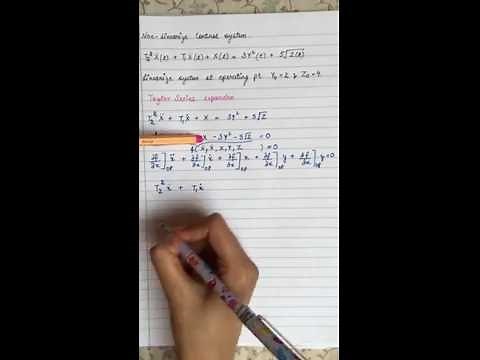 Non-linearize Control system.
T₂² Ẍ(t) + T₁Ẋ(t) + X(t) = 3Y²(t) + 5√Z(t)
Linearize system at operating pt. Y₀ = 2 & Z₀ = 4.
Taylor Series expansion
T₂² Ẍ + T₁Ẋ + X = 3Y² + 5√Z
X - 3Y² - 5√Z = 0
f(Ẍ, Ẋ, X, Y, Z) = 0
∂f/∂x]OP ẍ + ∂f/∂x]OP ẋ + ∂f/∂x]OP x + ∂f/∂x]OP y + ∂f/∂x]OP y = 0
T₂² ẍ + T₁ẋ